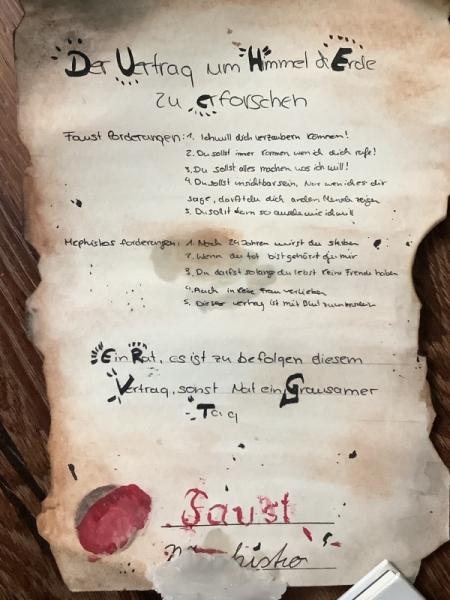 Der Vertrag um Himmel & Erde
zu erforschen
Faust forderungen: 1. Ich will dich verzaubern können!
2. Du sollst immer kommen wen ich dich rufe!
3. Du sollst alles machen was ich will!
4. Du sollst unsichtbar sein. Nur wen ich es dir
sage, darfst du dich andern Mensch zeigen
5. Du sollst dann so aussehen wie ich will
Mephistos forderungen: 1. Nach 24 Jahren wirst du sterben
2. Wenn du tot bist gehörst du mir
3. Du darfst solange du lebst keine Freude haben
4. Auch in keine Frau verlieben
5. Dieser vertrag ist mit Blut
Ein Rat, es ist zu befolgen diesem
Vertrag, sonst Nat ein Grausamer
Tag
Faust